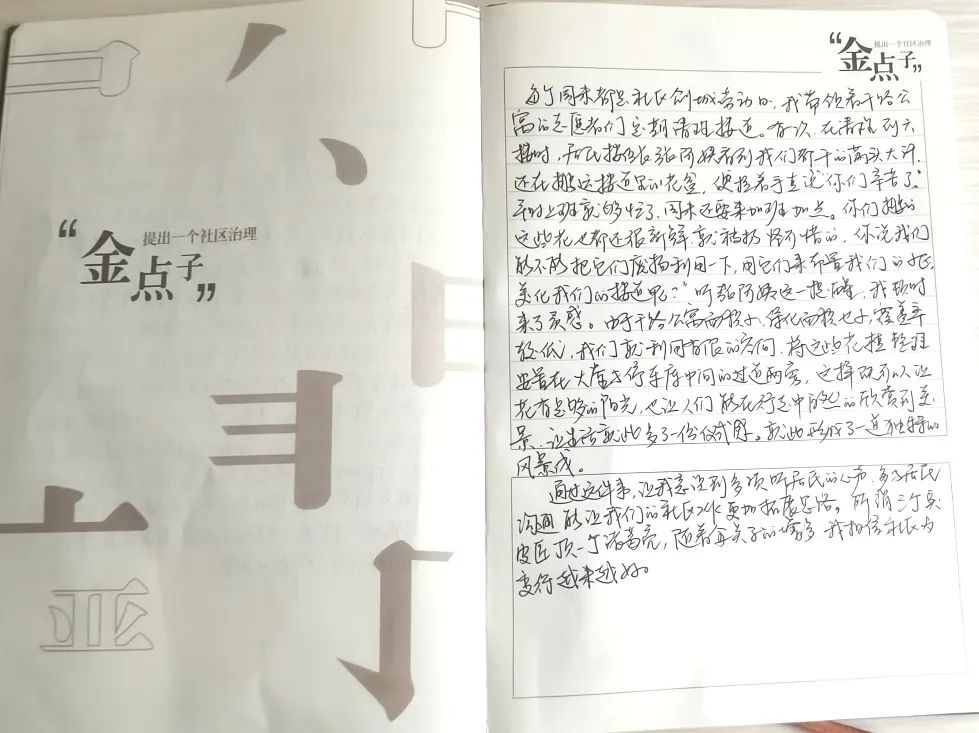 “金点子”
提出一个社区治理
“金点子”
提出一个社区治理
每个周末都是社区创城劳动日,我带领着干路公
寓的志愿者们定期清理楼道。有次在清理到六
楼时,居民楼组长张阿姨看到我们所干的满头大汗,
还在搬运楼道里的花盆,便拉着手直说“你们辛苦了”
平时上班就够忙了,周末还要来加班加点。你们搬的
这些花也都还很新鲜,就被扔怪可惜的,你说我们
能不能把它们废物利用一下,用它们来布置我们的小区
美化我们的楼道呢?”听张阿姨这一提醒,我顿时
来了灵感。由于干路公寓面积小,绿化面积也少,覆盖率
较低,我们就利用有限的空间,将这些花植整理
安置在大厦与停车库中间的过道两旁,这样既可以让
花有足够的阳光,也让人们能在行走中的欣赏到美
景,让生活就此多了一份仪式感。就此形成了一道独特的
风景线。
通过这件事,让我意识到多倾听居民的心声,多与居民
沟通能让我们的社区文化更加拓展思路,所谓三个臭
皮匠顶一个诸葛亮,随着金点子的增多,我相信社区内
变得越来越好。